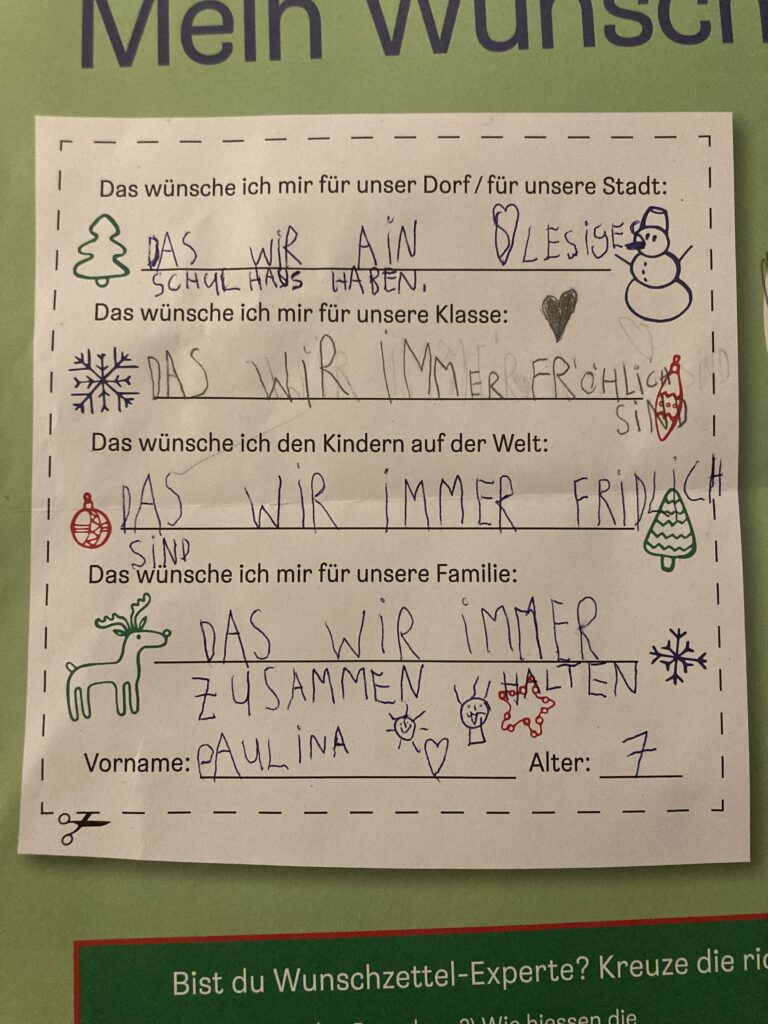 Mein Wunsch
Das wünsche ich mir für unser Dorf / für unsere Stadt:
DAS WiR AiN LESIGES
SCHULHAUS HABEN.
Das wünsche ich mir für unsere Klasse:
DAS WiR iMMER FRÖHLiCH
SiND
Das wünsche ich den Kindern auf der Welt:
DAS WiR iMMER FRiDLiCH
SiND
Das wünsche ich mir für unsere Familie:
DAS WiR iMMER
ZUSAMMEN HALTEN
Vorname: PAULiNA Alter: 7
Bist du Wunschzettel-Experte? Kreuze die ric
2) Wie hiessen die